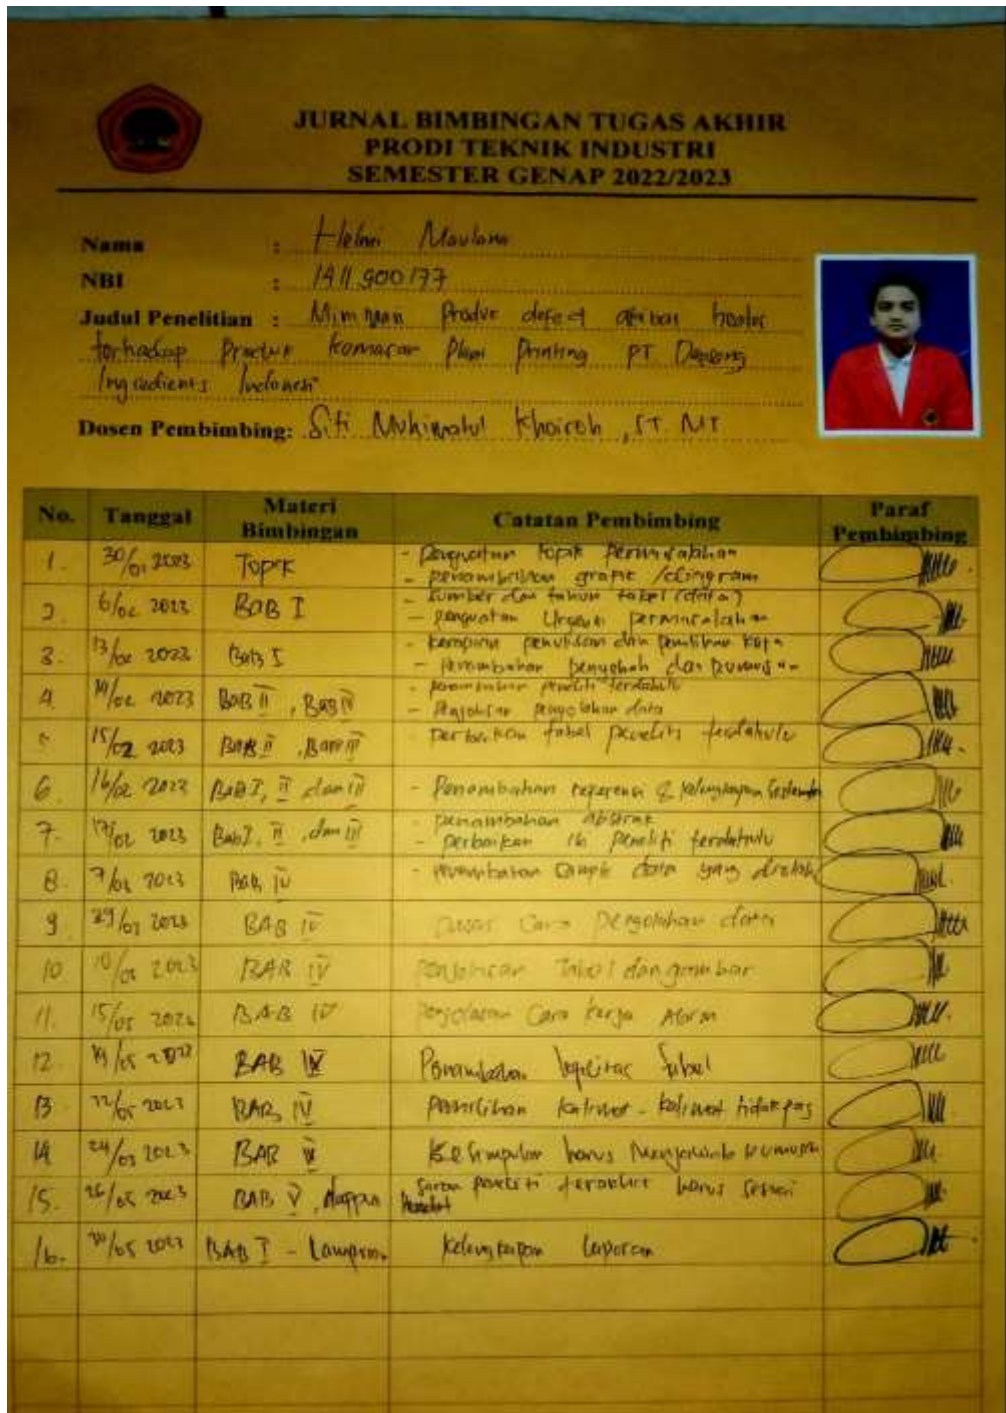 JURNAL BIMBINGAN TUGAS AKHIR
PRODI TEKNIK INDUSTRI
SEMESTER GENAP 2022/2023
Nama : Helmi Maulana
NBI : 1411900177
Judul Penelitian : Produk defect heater
terhadap Kemasan Plan Printing PT
Ingredients Indonesi
Dosen Pembimbing: Siti Muhimatul Khoiroh, ST. MT
No. Tanggal Materi Bimbingan Catatan Pembimbing Paraf Pembimbing
1. 30/01 2023 Topik - penguatan topik permasalahan
- penambahan grafik /diagram
2. 6/02 2023 BAB I - Sumber dan tahun tabel (data)
- penguatan Urgensi permasalahan
3. 13/02 2023 Bab I - kerapian penulisan dan pemilihan kata
- penambahan penyebab dan rumusan
4. 14/02 2023 BAB II, BAB IV - penambahan peneliti terdahulu
- pengolahan data
15/02 2023 BAB II, BAB III - perbaikan tabel peneliti terdahulu
6. 16/02 2023 BAB I, II dan III - Penambahan referensi &
7. 17/02 2023 Bab I, II, dan III - penambahan abstrak
- perbaikan 16 Peneliti terdahulu
8. 7/03 2023 BAB IV - data yang diolah
9 29/03 2023 BAB IV Cara Pengolahan data
10 10/05 2023 BAB IV Penjelasan Tabel dan gambar
11. 15/05 2023 BAB IV Penjelasan Cara kerja Alarm
12. 19/05 2023 BAB IV Penambahan tabel
13 22/05 2023 BAB IV Pemilihan kalimat - kalimat tidak pas
14 24/05 2023 BAB V Kesimpulan harus Menjawab rumusan
15. 26/05 2023 BAB V, Saran peneliti terakhir harus sesuai
16. 30/05 2023 BAB I - Lampiran Kelengkapan laporan